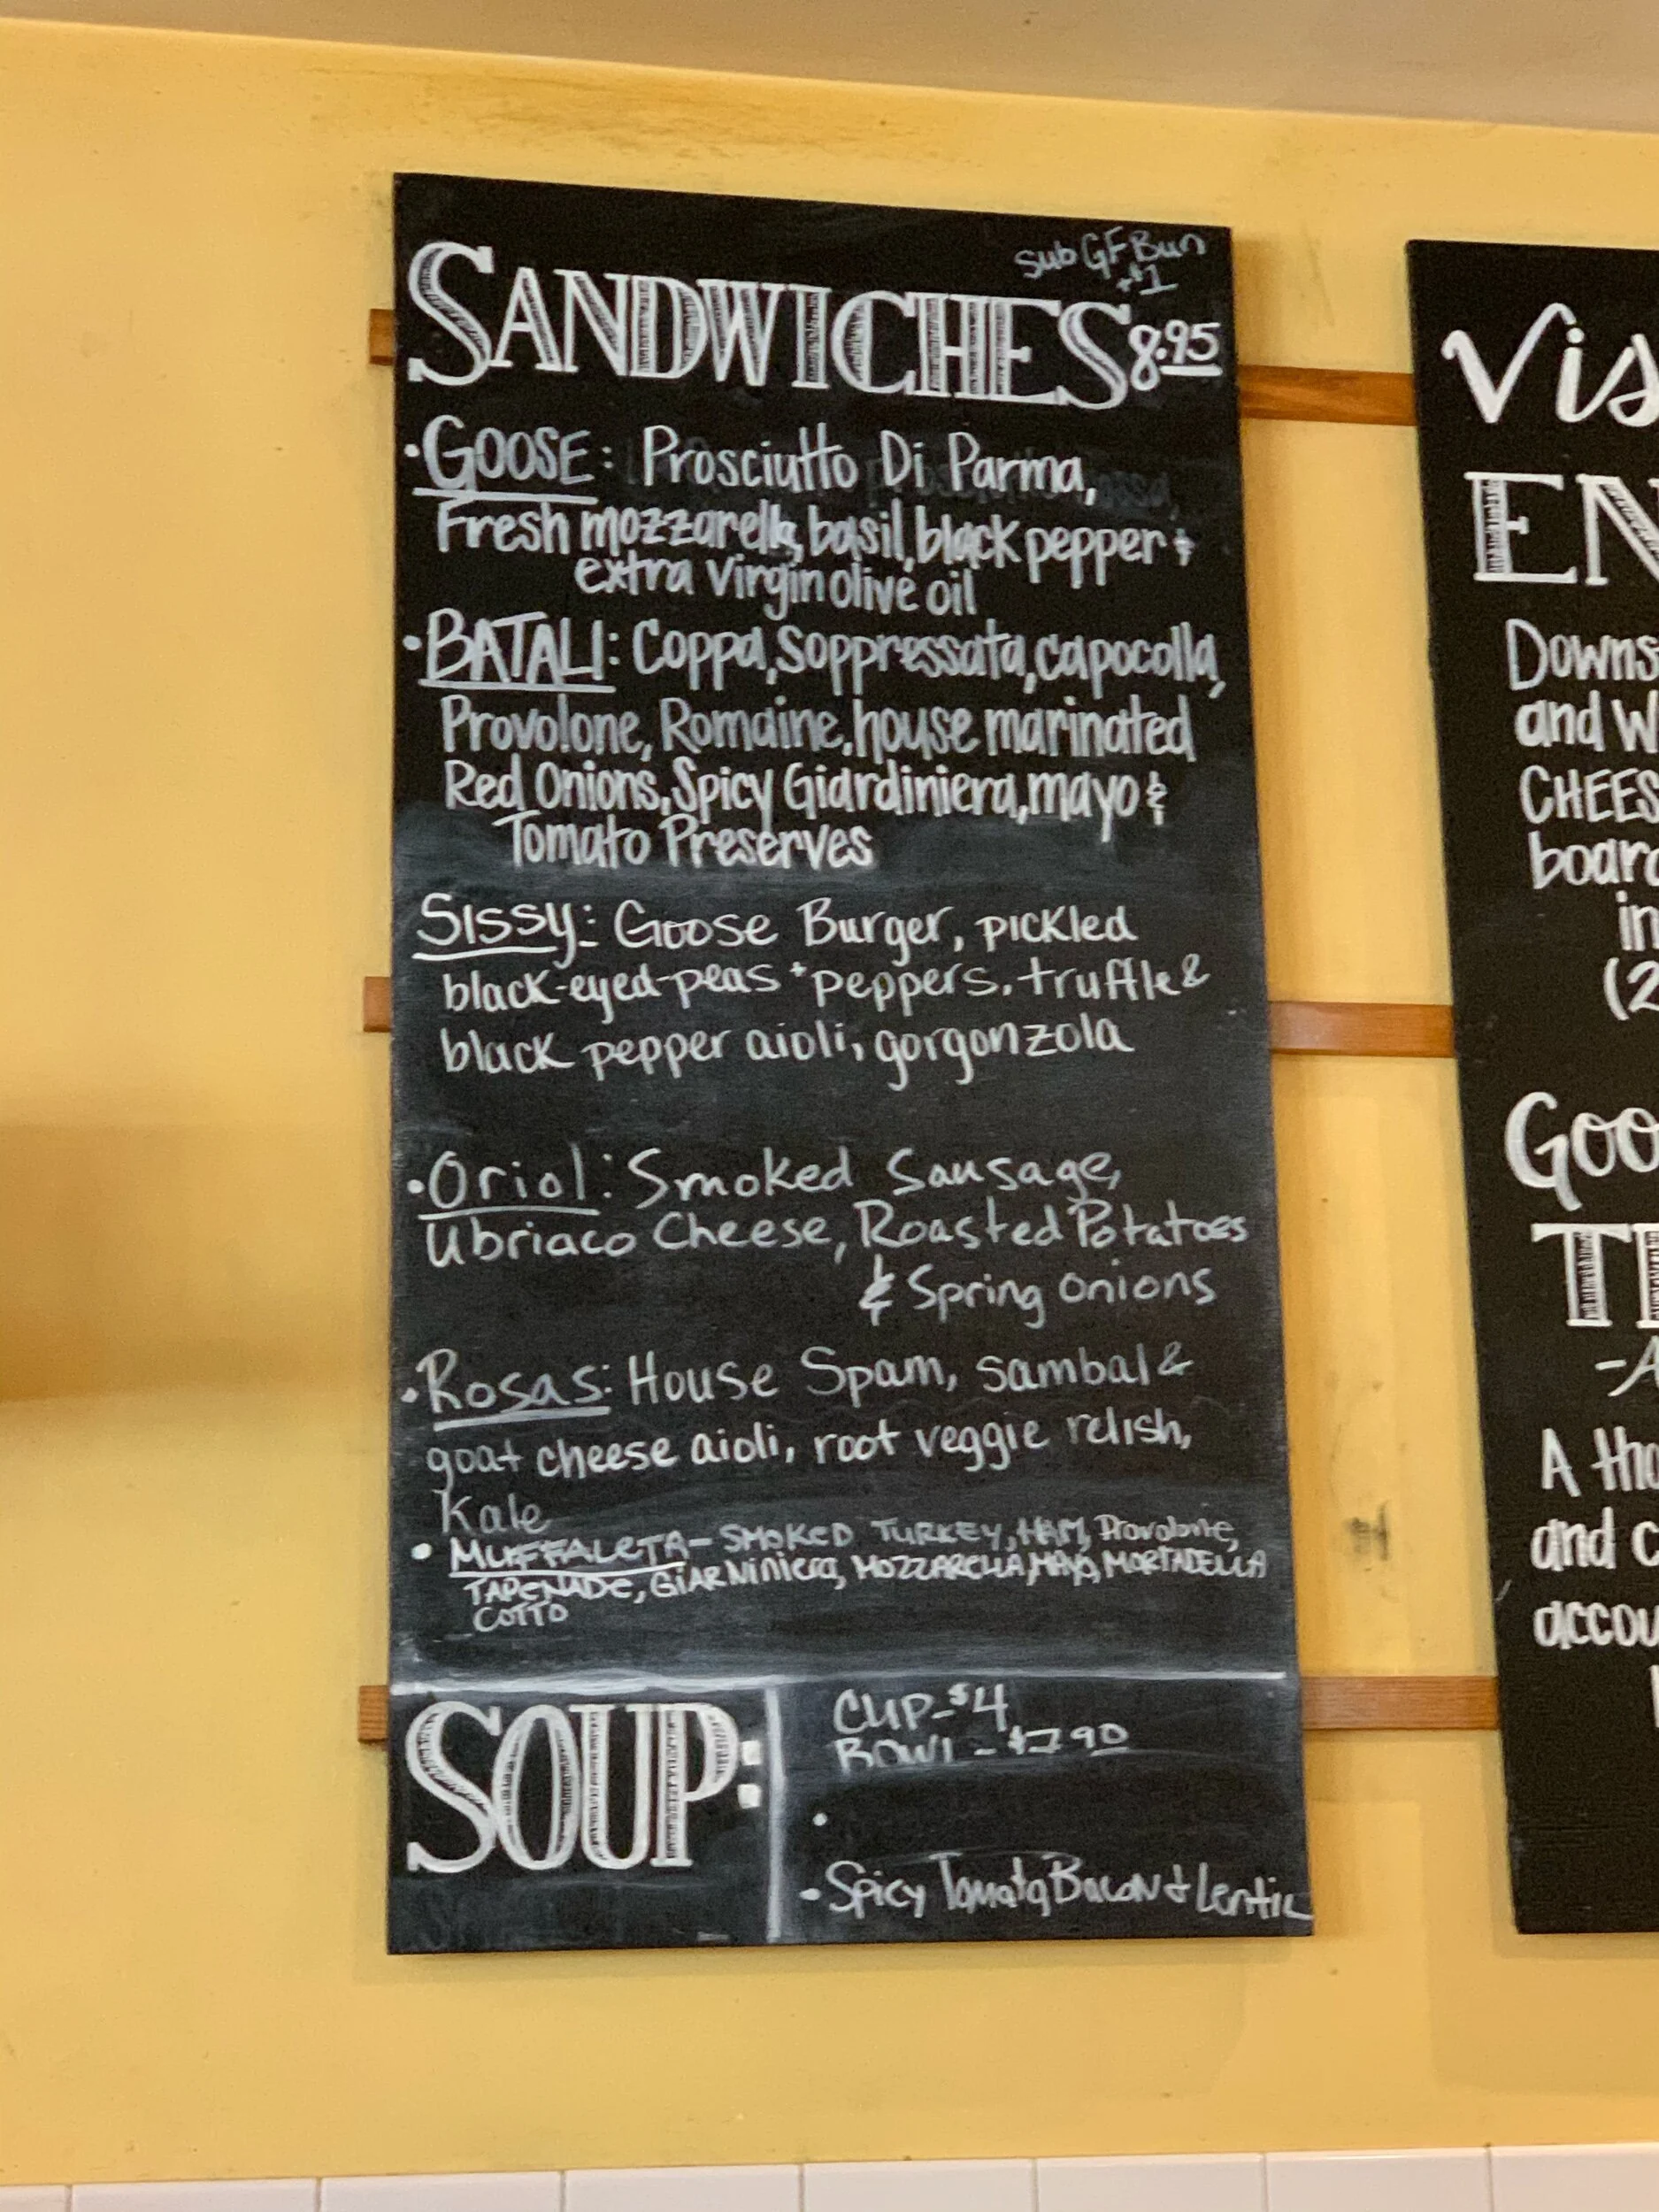 sub GF Bun
+$1
SANDWICHES 8.95
·GOOSE: Prosciutto Di Parma,
Fresh mozzarella, basil, black pepper &
extra virgin olive oil
·BATALI: Coppa, Soppressata, capocolla,
Provolone, Romaine, house marinated
Red Onions, Spicy Giardiniera, mayo &
Tomato Preserves
SISSY: Goose Burger, pickled
black-eyed-peas + peppers, truffle &
black pepper aioli, gorgonzola
·Oriol: Smoked Sausage,
Ubriaco Cheese, Roasted Potatoes
& Spring onions
·Rosas: House Spam, sambal &
goat cheese aioli, root veggie relish,
Kale
• MUFFALETA - SMOKED TURKEY, HAM, Provolone,
TAPENADE, GIARNiNiera, MOZZARELLA, MAYO, MORTADELLA
COTTO
SOUP:
CUP - $4
BOWl - $7.90
·
· Spicy Tomato, Bacon & Lentil
Vis
EN
Downs
and W
CHEES
board
in
(2
Goo
TE
-A
A tho
and c
accou